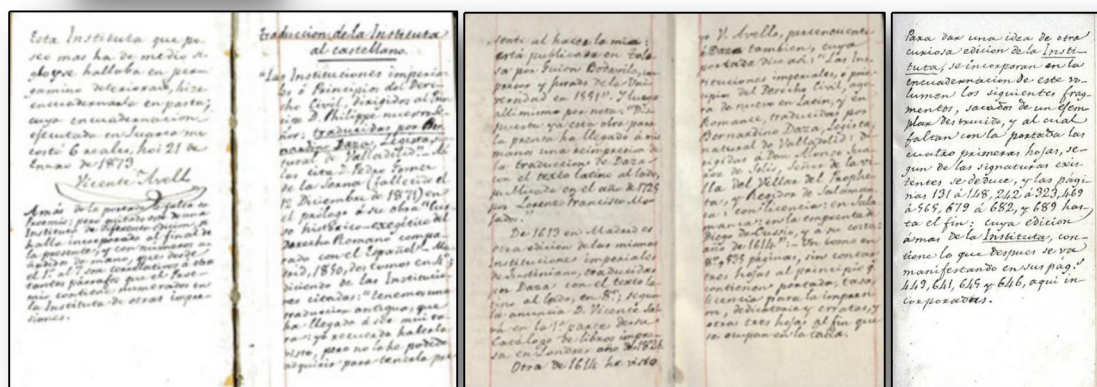 Esta Instituta que po-
seo mas ha de medio si-
glo, y se hallaba en per-
gamino deteriorado, hize
encuadernarla en pasta;
cuya encuadernacion
ejecutada en Luarca me
costó 6 reales, hoi 21 de
Enero de 1873
Vicente Avello
Amás de la portada, falta el
Proemio; pero quitado este de una
Instituta de diferente edicion, se
halla incorporado al final de
la presente, y con números aña-
didos de mano, que desde
el 1º al 7º son correlativos a otros
tantos párrafos que el Proe-
mio contiene numerados en
la Instituta de otras impre-
siones.
Traduccion de la Instituta
al castellano.
"Las Instituciones imperia-
les ó Principios del Dere-
cho Civil, dirigidos al Prín-
cipe D. Philippe nuestro Se-
ñor: traducidas por Ber-
nardino Daza, Legista, na-
tural de Valladolid."—Así
las cita D. Pedro Gomez
de la Serna (fallecido el
12 Diciembre de 1871) en
el prólogo á su obra "Cur-
so histórico-exegético del
Derecho Romano compa-
rado con el Español", Ma-
drid, 1850, dos tomos en 4º;
diciendo de las Institucio-
nes citadas: "tenemos una
traduccion antigua, que
ha llegado á ser mui ra-
ra: yo recuerdo haberla
visto, pero no la he podido
adquirir para tenerla pre-
sente al hacer la mia:
está publicada en Tolo-
sa por Guion Bodavila, im-
presor y jurado de la Uni-
versidad en 1551". Y luego
allí mismo por nota: "Dis-
puesta ya esta obra para
la prensa ha llegado á mis
manos una reimpresion de
la traduccion de Daza
con el texto latino al lado,
publicada en el año de 1725
por Lorenzo Francisco Mo-
jados."
De 1613 en Madrid es
otra edicion de las mismas
Instituciones imperiales
de Justiniano, traducidas
por Daza con el texto la-
tino al lado, en 8º; segun
la anuncia D. Vicente Sal-
vá en la 1ª parte de su
Catálogo de libros impre-
sa en Londres año de 1826.
Otra de 1614 he visto
yo V. Avello, perteneciente
á Daza tambien, cuya
portada dice así: "Las Ins-
tituciones imperiales, ó prin-
cipios del Derecho Civil, ago-
ra de nuevo en Latin, y en
Romance, traducidas por
Bernardino Daza, Legista,
natural de Valladolid: di-
rigidas á Don Alonso Juá-
rez de Solis, Señor de la vi-
lla del Villar del Prophe-
ta, y Regidor de Salaman-
ca: con licencia: en Sala-
manca: en la emprenta de
Diego de Cussio, y a su costa:
año de 1614".—Un tomo en
8º, 535 páginas, sin contar
tres hojas al principio q.
contienen portada, tasa,
licencia para la impre-
sion, dedicatoria y erratas, y
otras tres hojas al fin que
se ocupan en la tabla.
Para dar una idea de otra
curiosa edicion de la Insti-
tuta, se incorporan en la
encuadernacion de este vo-
lumen los siguientes frag-
mentos, sacados de un ejem-
plar destruido, y al cual
faltan con la portada las
cuatro primeras hojas, se-
gun de las signaturas exis-
tentes se deduce, y las pági-
nas 131 á 148, 242 á 323, 469
á 565, 679 á 682, y 689 has-
ta el fin: cuya edicion
ámas de la Instituta, con-
tiene lo que despues se va
manifestando en sus pág.s
449, 641, 645 y 646, aquí in-
corporadas.